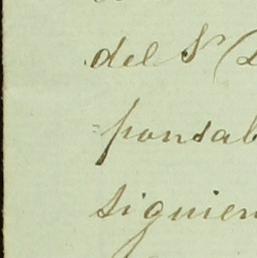 del Sr
=ponsab
siguien